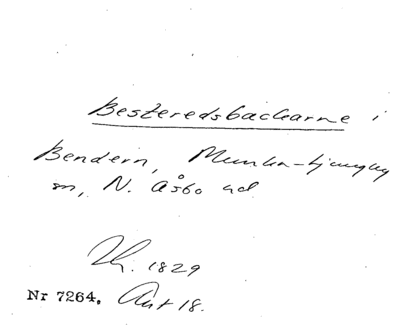 Besteredsbackarne i
Bendern, Munka-Ljungby
sn, N. Åsbo hd
1829
Nr 7264. Akt 18.